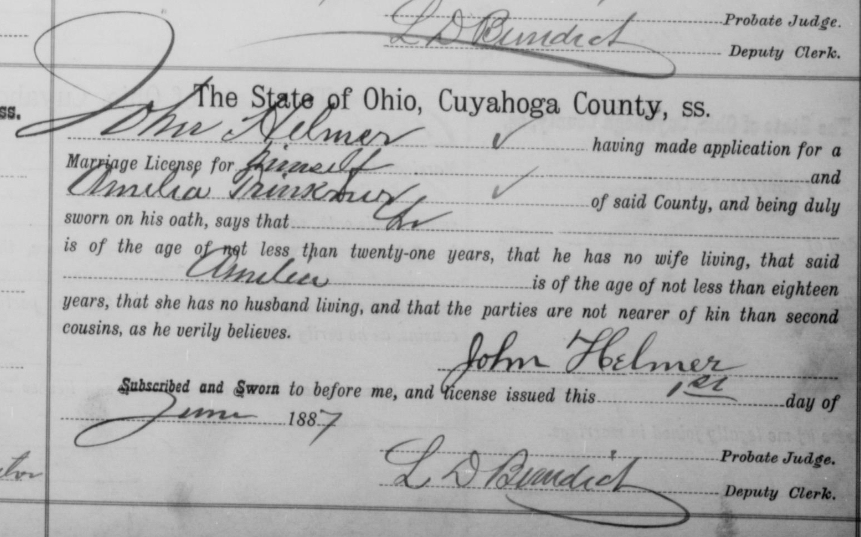 Probate Judge.
L D Benedict
Deputy Clerk.
ss.
The State of Ohio, Cuyahoga County, ss.
John Helmer having made application for a
Marriage License for himself and
Amelia of said County, and being duly
sworn on his oath, says that he
is of the age of not less than twenty-one years, that he has no wife living, that said
Amelia is of the age of not less than eighteen
years, that she has no husband living, and that the parties are not nearer of kin than second
cousins, as he verily believes.
John Helmer
Subscribed and Sworn to before me, and license issued this 1st day of
June 1887
Probate Judge.
L D Benedict
Deputy Clerk.